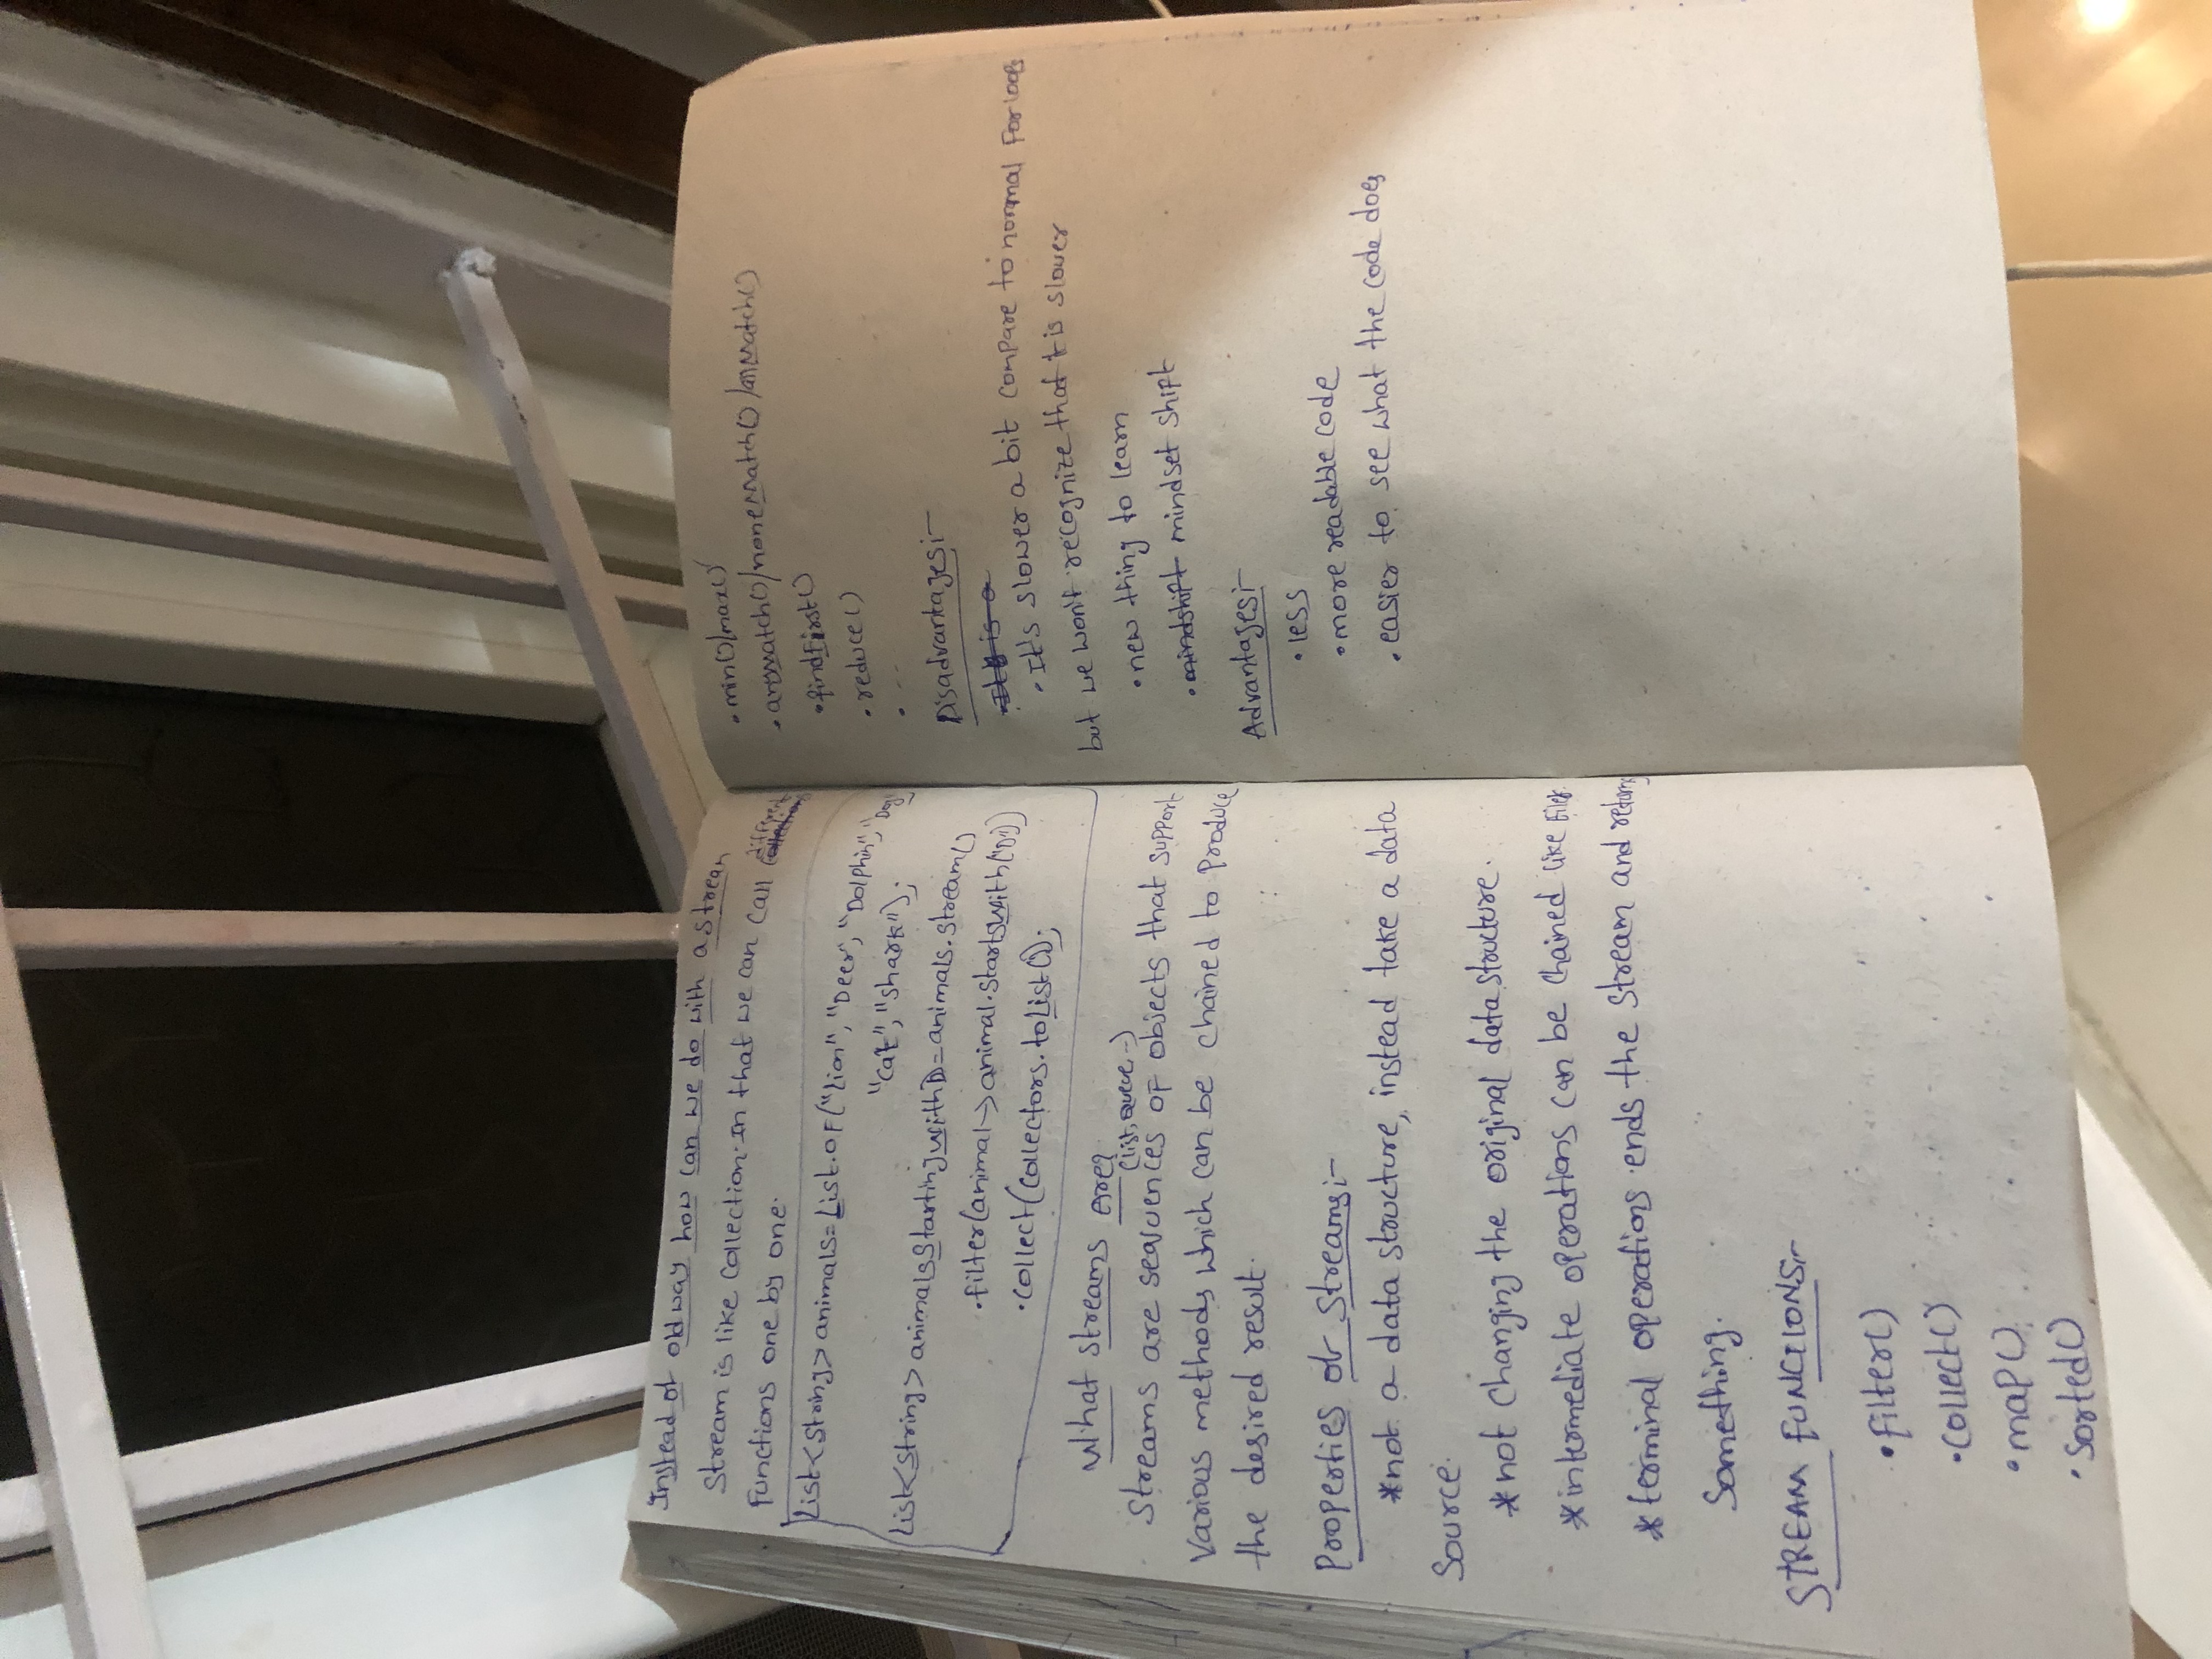 Instead of old way how can we do with a stream
Stream is like collection. In that we can call different
functions one by one.
List<String> animals = List.of("Lion", "Deer", "Dolphin", "Dog",
"Cat", "Shark");
List<String> animalsStartingWithD = animals.stream()
.filter(animal -> animal.startsWith("D"))
.collect(Collectors.toList());
What streams are?
(list, queue, ..)
Streams are sequences of objects that support
various methods which can be chained to produce
the desired result.
Properties of Streams:-
*not a data structure, instead take a data
source.
*not changing the original data structure.
*intermediate operations can be chained like
*terminal operations ends the stream and returns
something.
STREAM FUNCTIONS:-
•filter()
•collect()
•map()
•sorted()
•min()/max()
•anyMatch()/noneMatch()/allMatch()
•findFirst()
•reduce()
• ---
Disadvantages:-
It is a
•It's slower a bit compare to normal For loops
but we won't recognize that it is slower
•new thing to learn
•mindshift mindset shift
Advantages:-
•less
•more readable code
•easier to see what the code does